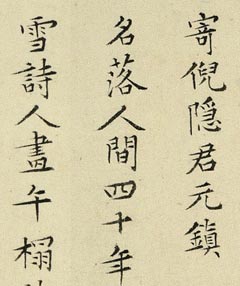 寄倪隱君元鎮
名落人間四十年
雪詩人畫午榻